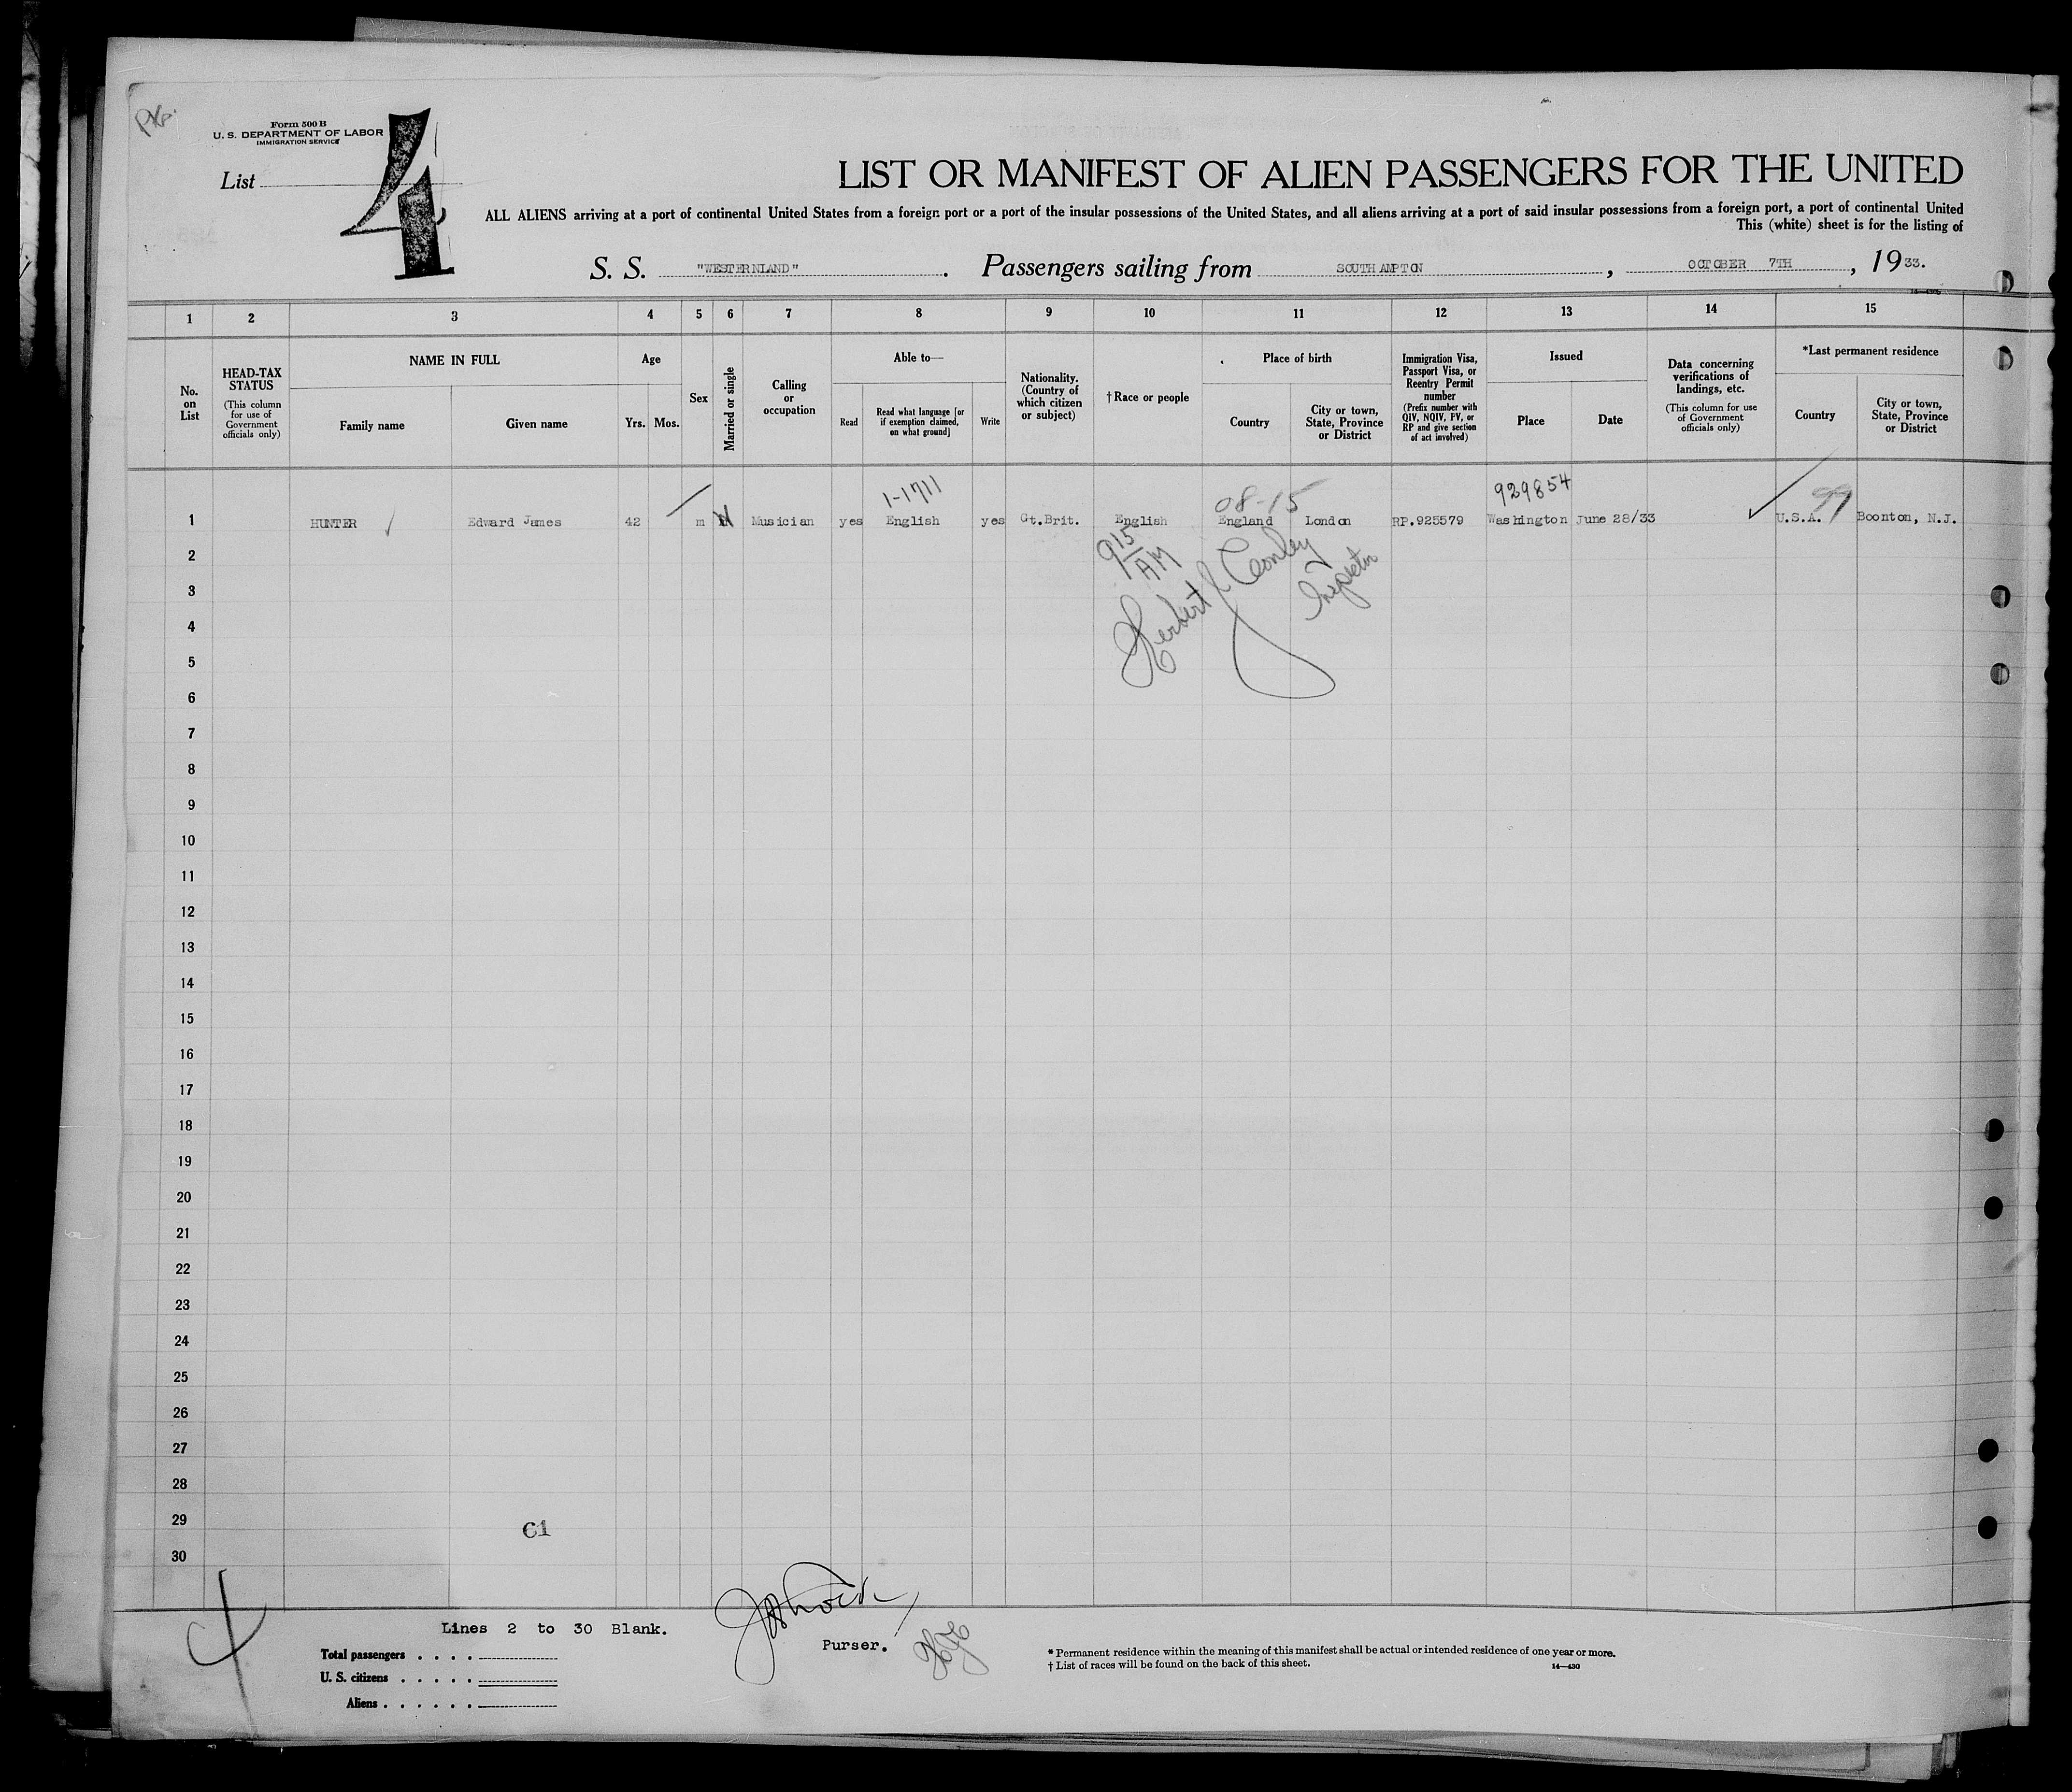 PKG.
Form 500 B
U. S. DEPARTMENT OF LABOR
IMMIGRATION SERVICE
List
4
LIST OR MANIFEST OF ALIEN PASSENGERS FOR THE UNITED
ALL ALIENS arriving at a port of continental United States from a foreign port or a port of the insular possessions of the United States, and all aliens arriving at a port of said insular possessions from a foreign port, a port of continental United
This (white) sheet is for the listing of
S. S. "WESTERNLAND". Passengers sailing from SOUTHAMPTON, OCTOBER 7TH, 1933.
1 2 3 4 5 6 7 8 9 10 11 12 13 14 15
No. on List
HEAD-TAX STATUS (This column for use of Government officials only)
NAME IN FULL
Family name
Given name
Age
Yrs. Mos.
Sex
Married or single
Calling or occupation
Able to—
Read
Read what language [or if exemption claimed, on what ground]
Write
Nationality. (Country of which citizen or subject)
†Race or people
Place of birth
Country
City or town, State, Province or District
Immigration Visa, Passport Visa, or Reentry Permit number (Prefix number with QIV, NQIV, PV, or RP and give section of act involved)
Issued
Place
Date
Data concerning verifications of landings, etc. (This column for use of Government officials only)
*Last permanent residence
Country
City or town, State, Province or District
1-1711 08-15 929854 99
1 HUNTER Edward James 42 m Musician yes English yes Gt.Brit. English England London RP.925579 Washington June 28/33 U.S.A. Boonton, N.J.
915 AM
Herbert Conley
Inspector
2
3
4
5
6
7
8
9
10
11
12
13
14
15
16
17
18
19
20
21
22
23
24
25
26
27
28
29
30
C1
Lines 2 to 30 Blank.
Purser.
Total passengers
U. S. citizens
Aliens
* Permanent residence within the meaning of this manifest shall be actual or intended residence of one year or more.
† List of races will be found on the back of this sheet.
14—430